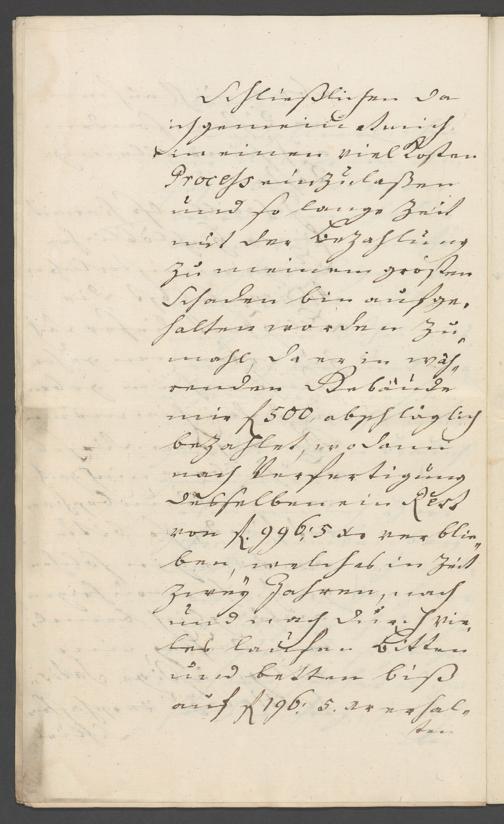 Schließlichen da
ich gemeint mich
in einen viel Kosten
Process einzulaßen
und so lange Zeit
mit der Bezahlung
zu meinem grösten
Schaden bin aufge¬
halten worden zu¬
mahl, da er in wäh¬
renden Gebäude
mir f 500, abschläglich
bezahlet, wodann
nach Verfertigung
desselben ein Rest
von f. 996: 5 xr verblie¬
ben, welches in Zeit
zweÿ Jahren, nach
und nach durch vie¬
les laufen Bitten
und betten biß
auf f 196: 5. xr erhal¬
ten